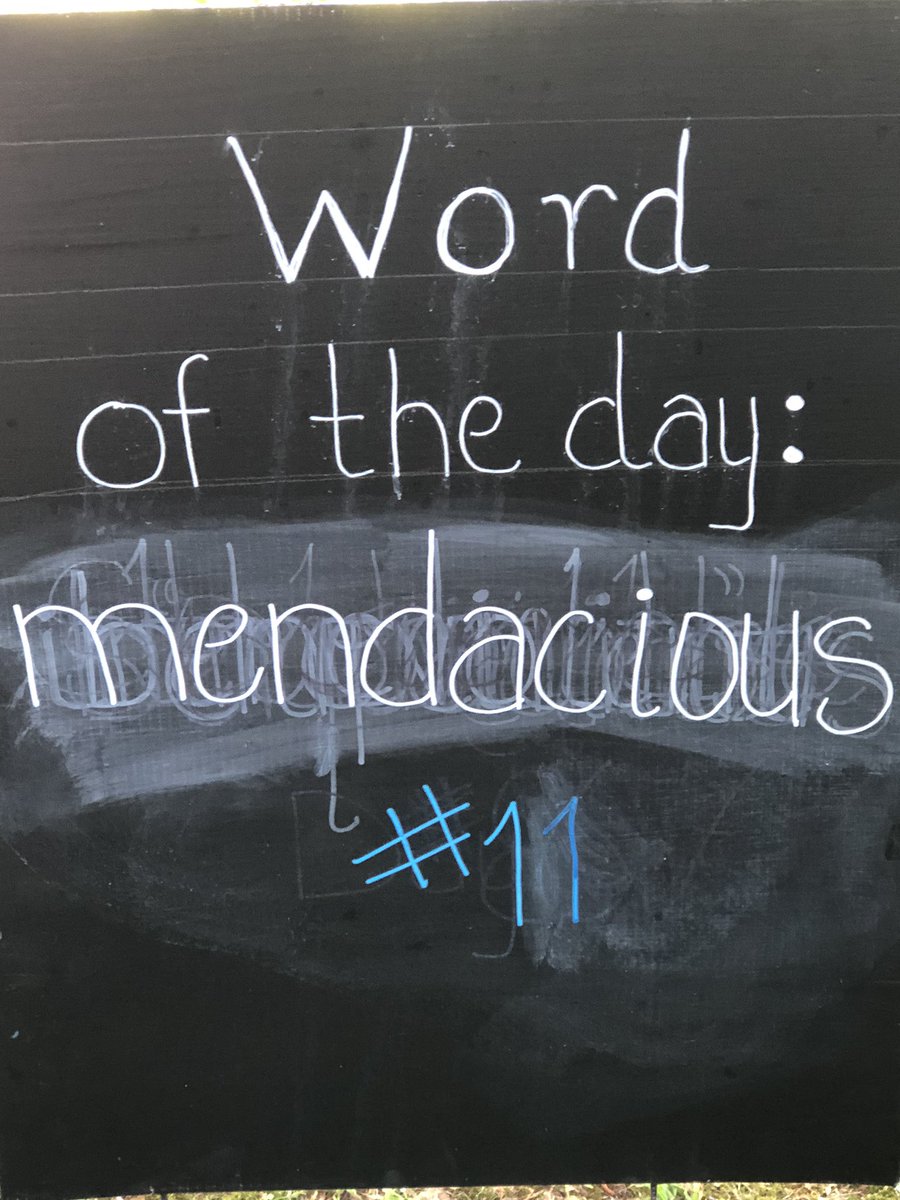 Word
of the day:
mendacious
#11